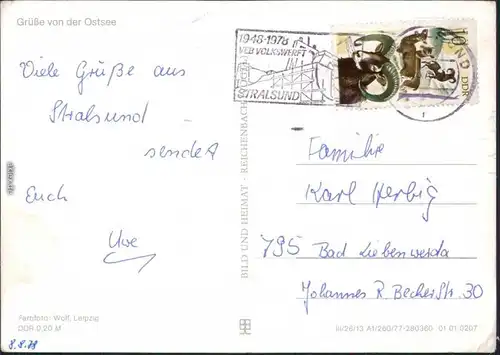 Grüße von der Ostsee
1948-1978
VEB VOLKSWERFT
STRALSUND
10
DDR
Viele Grüße aus
Stralsund
sendet
Euch
Uwe
Familie
Karl Herbig
795 Bad Liebenwerda
Johannes R. Becherstr. 30
BILD UND HEIMAT · REICHENBACH
Farbfoto: Wolf, Leipzig
DDR 0,20 M
III/26/13 A1/260/77-280360 01 01 0207
8.8.78